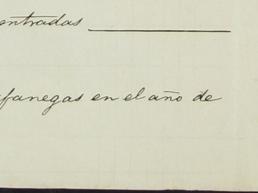 entradas
fanegas en el año de